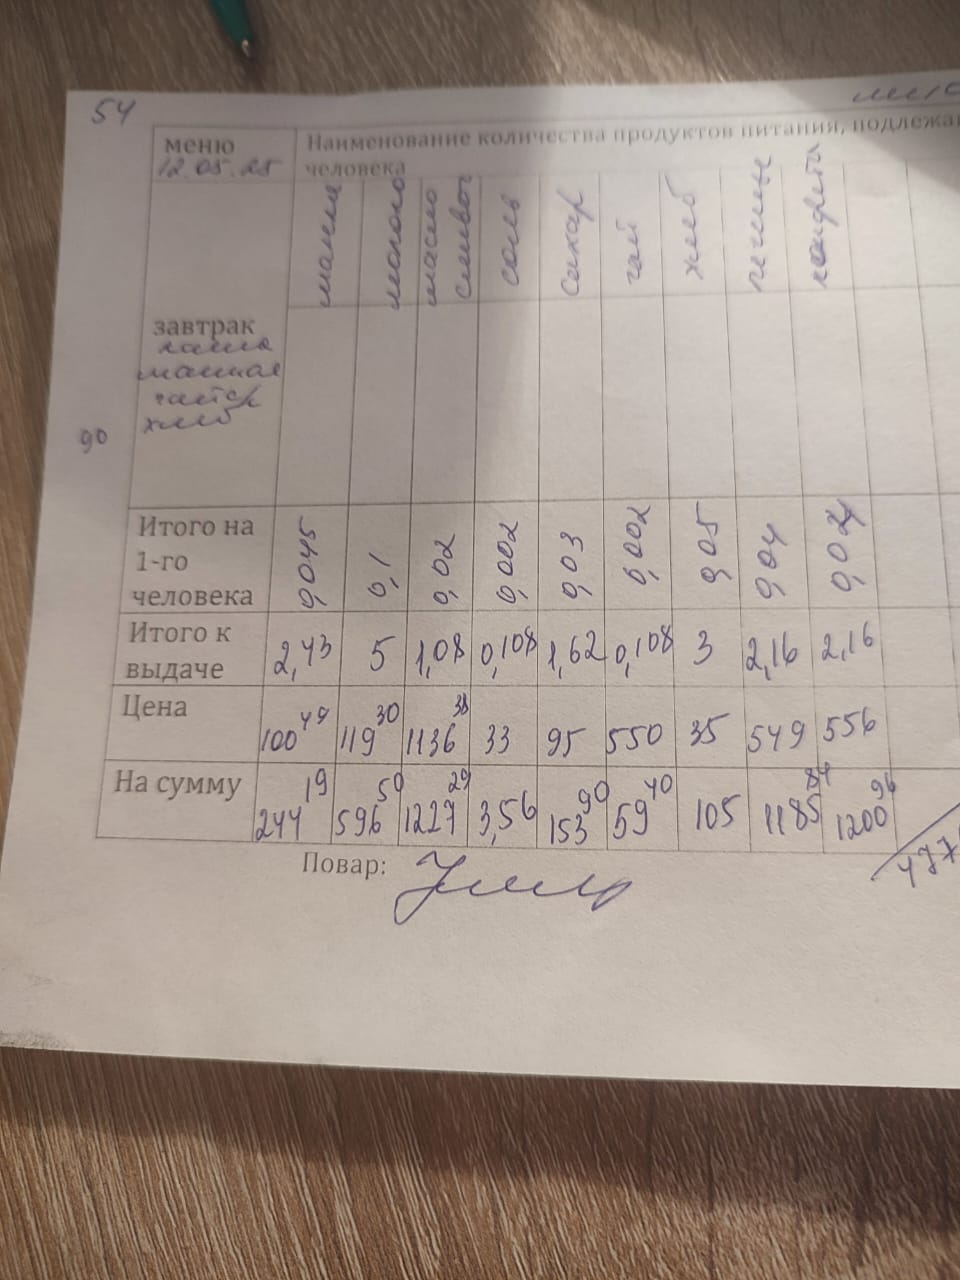 54
меню Наименование количества продуктов питания, подлежа
12.05.25 человека
манка молоко масло сливоч соль сахар чай хлеб печенье конфета
завтрак
каша
манная
чай сах
хлеб
90
Итого на 1-го человека 0,045 0,1 0,02 0,002 0,03 0,002 0,05 0,04 0,04
Итого к выдаче 2,43 5 1,08 0,108 1,62 0,108 3 2,16 2,16
Цена 100 49 119 30 1136 38 33 95 550 35 549 556
На сумму 244 19 596 50 1227 29 3,56 153 90 59 40 105 1185 84 1200 96
477
Повар: